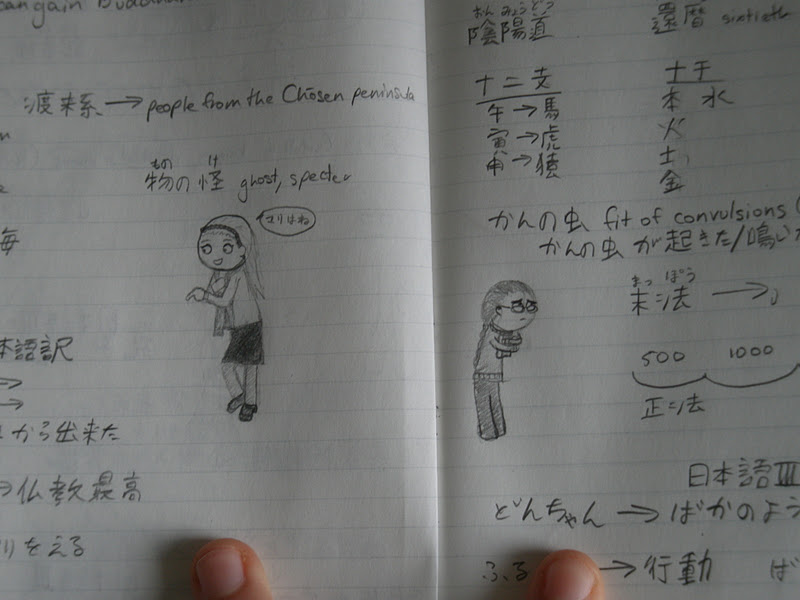 gain
渡来系 → people from the Chōsen peninsula
もの け
物の怪 ghost, specter
ユリはね
海
本語訳
→
→
から出来た
→仏教最高
りをえる
おんみょうどう
陰陽道
還暦 sixtieth
十二支
午→馬
寅→虎
申→猿
十干
木 水
火
土
金
かんの虫 fit of convulsions (
かんの虫が起きた/鳴い
まっ ぽう
末法 →
500 1000
正法
日本語III
どんちゃん → ばかのよう
ふる → 行動 ば